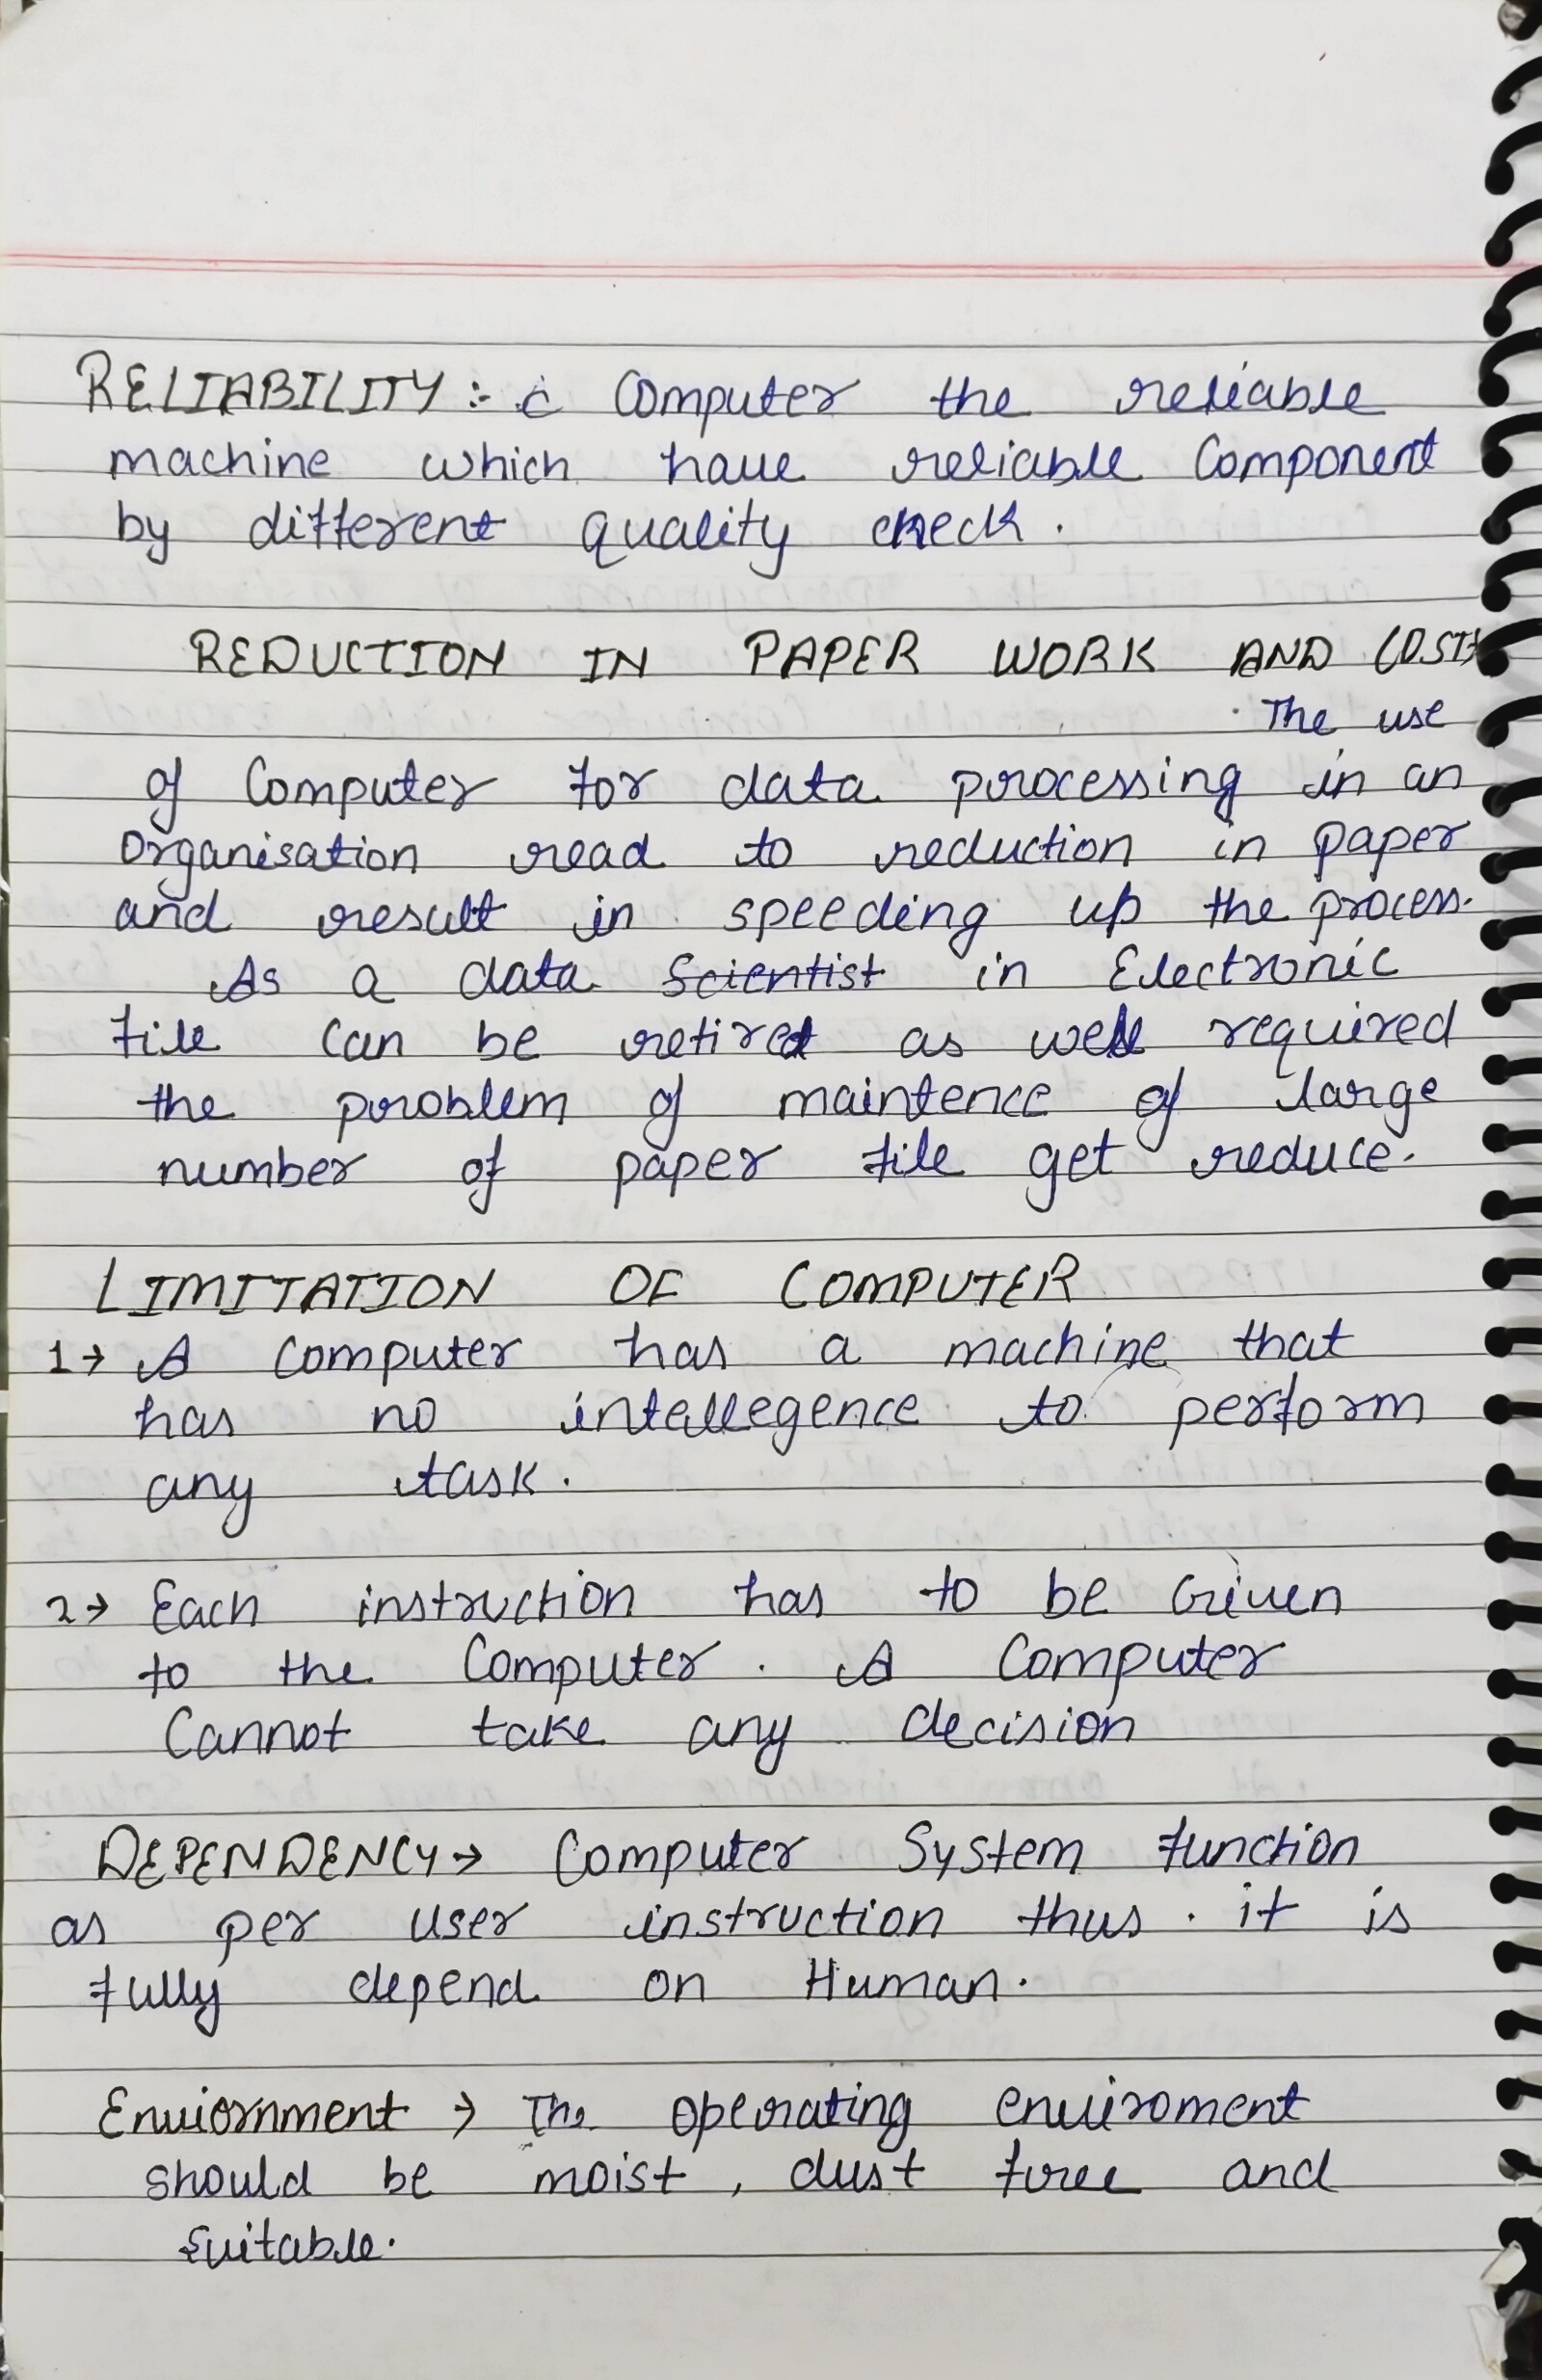 RELIABILITY :- c Computer the reliable
machine which have reliable Component
by different quality check.
REDUCTION IN PAPER WORK AND COST:
The use
of Computer for data processing in an
Organisation read to reduction in paper
and result in speeding up the process.
As a data Scientist in Electronic
file can be retired as well required
the problem of maintence of large
number of paper file get reduce.
LIMITATION OF COMPUTER
1→ A Computer has a machine that
has no intellegence to perform
any task.
2→ Each instruction has to be Given
to the Computer. A Computer
Cannot take any decision
DEPENDENCY→ Computer System function
as per user instruction thus. it is
fully depend on Human.
Enviornment → The operating enviroment
should be moist, dust free and
Suitable.